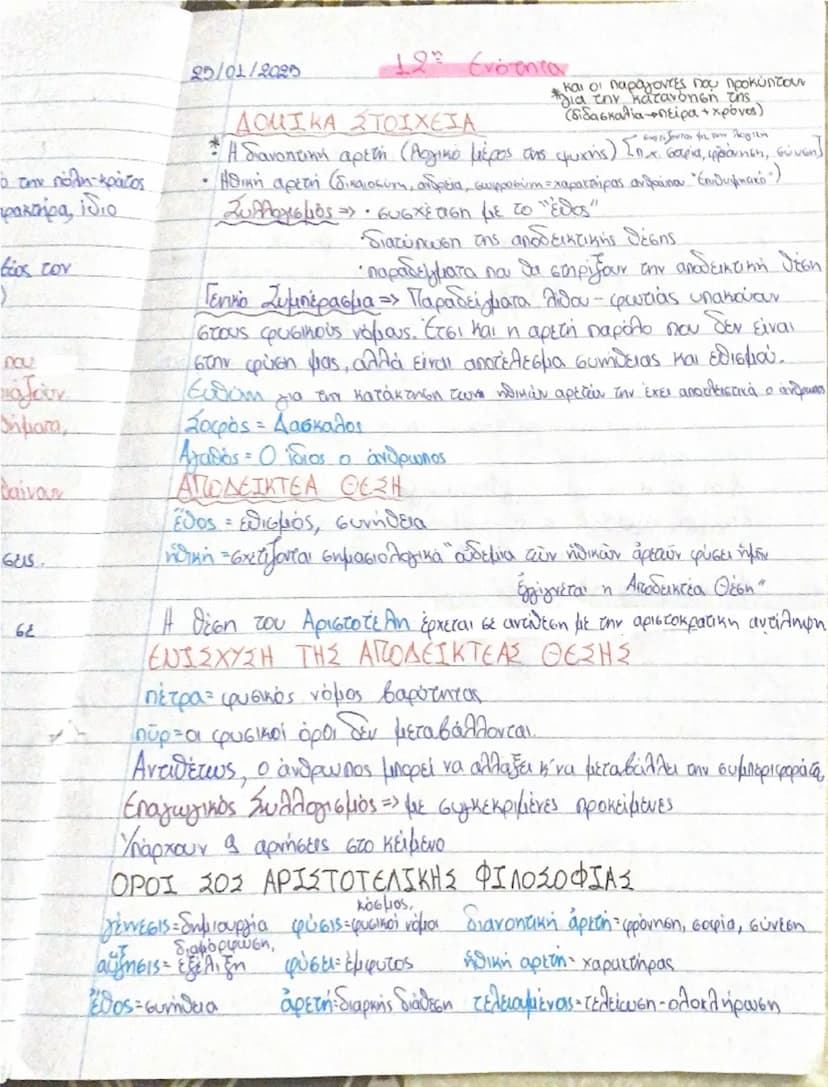 25/01/2025 12η Ενότητα
*και οι παράγοντες που προκύπτουν
για την κατανόηση της
(διδασκαλία→πείρα+χρόνος)
ΔΟΜΙΚΑ ΣΤΟΙΧΕΙΑ
* Η διανοητική αρετή (λογικό μέρος της ψυχής) [π.χ. σοφία, φρόνηση, σύνεση]
σχετίζονται με την
• Ηθική αρετή (δικαιοσύνη, ανδρεία, σωφροσύνη=χαρακτήρας ανθρώπου "Επιθυμητικό")
Συλλογισμός => • συσχέτιση με το "ἔθος"
• διατύπωση της αποδεικτικής θέσης
• παραδείγματα που θα στηρίξουν την αποδεικτική θέση
Γενικό Συμπέρασμα => Παραδείγματα λίθου - φωτιάς υπακούουν
στους φυσικούς νόμους. Έτσι και η αρετή παρόλο που δεν είναι
στην φύση μας, αλλά είναι αποτέλεσμα συνήθειας και εθισμού.
Ευθύνη για την κατάκτηση των ηθικών αρετών την έχει αποκλειστικά ο άνθρωπος
Σοφός = Δάσκαλος
Αγαθός = Ο ίδιος ο άνθρωπος
ΑΠΟΔΕΙΚΤΕΑ ΘΕΣΗ
ἔθος = εθισμός, συνήθεια
ἠθική = σχετίζονται σημασιολογικά "οὐδεμία τῶν ἠθικῶν ἀρετῶν φύσει ἡμῖν
ἐγγίγνεται η Αποδεικτέα Θέση"
Η θέση του Αριστοτέλη έρχεται σε αντίθεση με την αριστοκρατική αντίληψη
ΕΝΙΣΧΥΣΗ ΤΗΣ ΑΠΟΔΕΙΚΤΕΑΣ ΘΕΣΗΣ
πέτρα = φυσικός νόμος βαρύτητας
πῦρ = οι φυσικοί όροι δεν μεταβάλλονται.
Αντιθέτως, ο άνθρωπος μπορεί να αλλάξει κ' να μεταβάλλει την συμπεριφορά της
Επαγωγικός Συλλογισμός => με συγκεκριμένες προκείμενες
Υπάρχουν 9 αρνήσεις στο κείμενο
ΟΡΟΙ SOS ΑΡΙΣΤΟΤΕΛΙΚΗΣ ΦΙΛΟΣΟΦΙΑΣ
κόσμος,
γένεσις=δημιουργία φύσις=φυσικοί νόμοι διανοητική ἀρετή=φρόνηση, σοφία, σύνεση
διαμόρφωση,
αὔξησις=εξέλιξη φύσει=έμφυτος ἠθική αρετή= χαρακτήρας
ἔθος=συνήθεια ἀρετή=διαρκής διάθεση τελειωμένοις=τελείωση-ολοκλήρωση
ο την πόλη-κράτος
ρακτήρα, ίδιο
θέος τον
)
που
θήματα,
βαίνουν
σεις.
σε